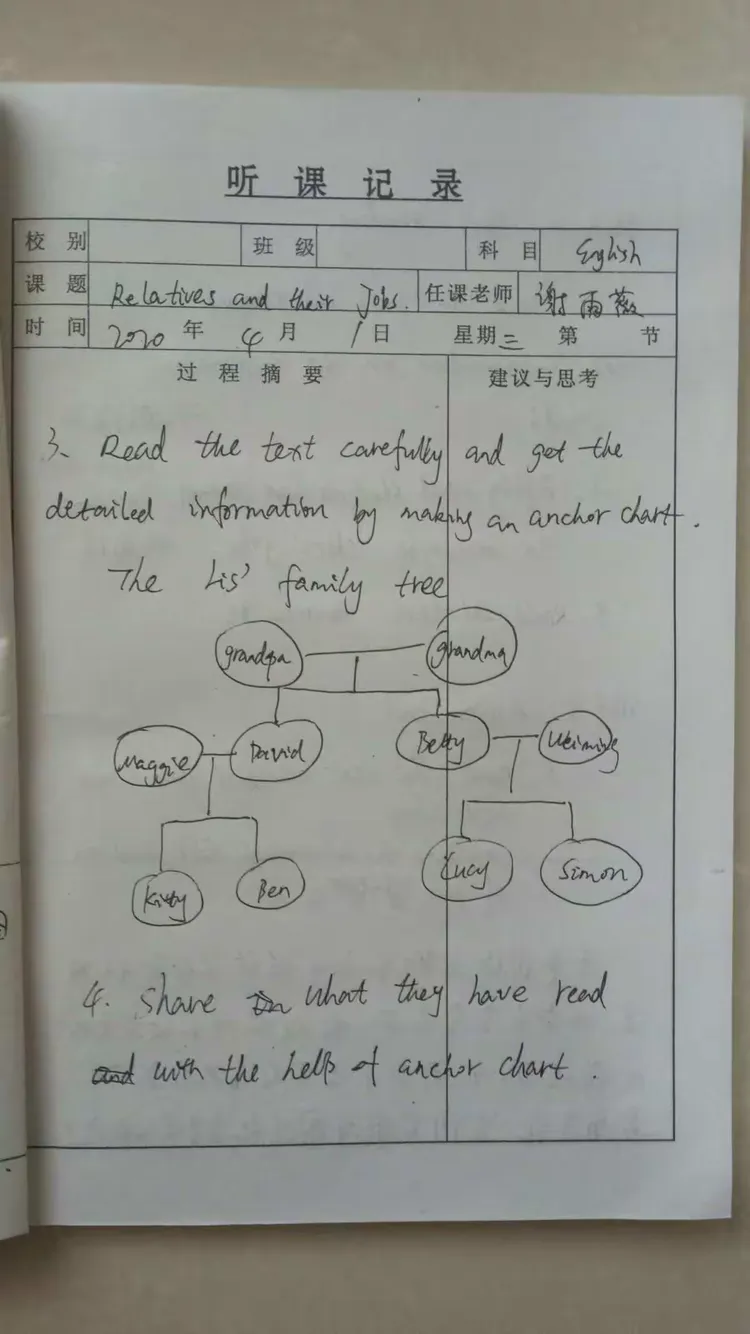 听课记录
校别 班级 科目 English
课题 Relatives and their Jobs. 任课老师 谢雨薇
时间 2020年 4月 1日 星期三 第 节
过程摘要 建议与思考
3、Read the text carefully and get the
detailed information by making an anchor chart.
The Lis' family tree
grandpa grandma
Maggie David Betty Weiming
Kitty Ben Lucy Simon
4. Share what they have read
with the help of anchor chart.